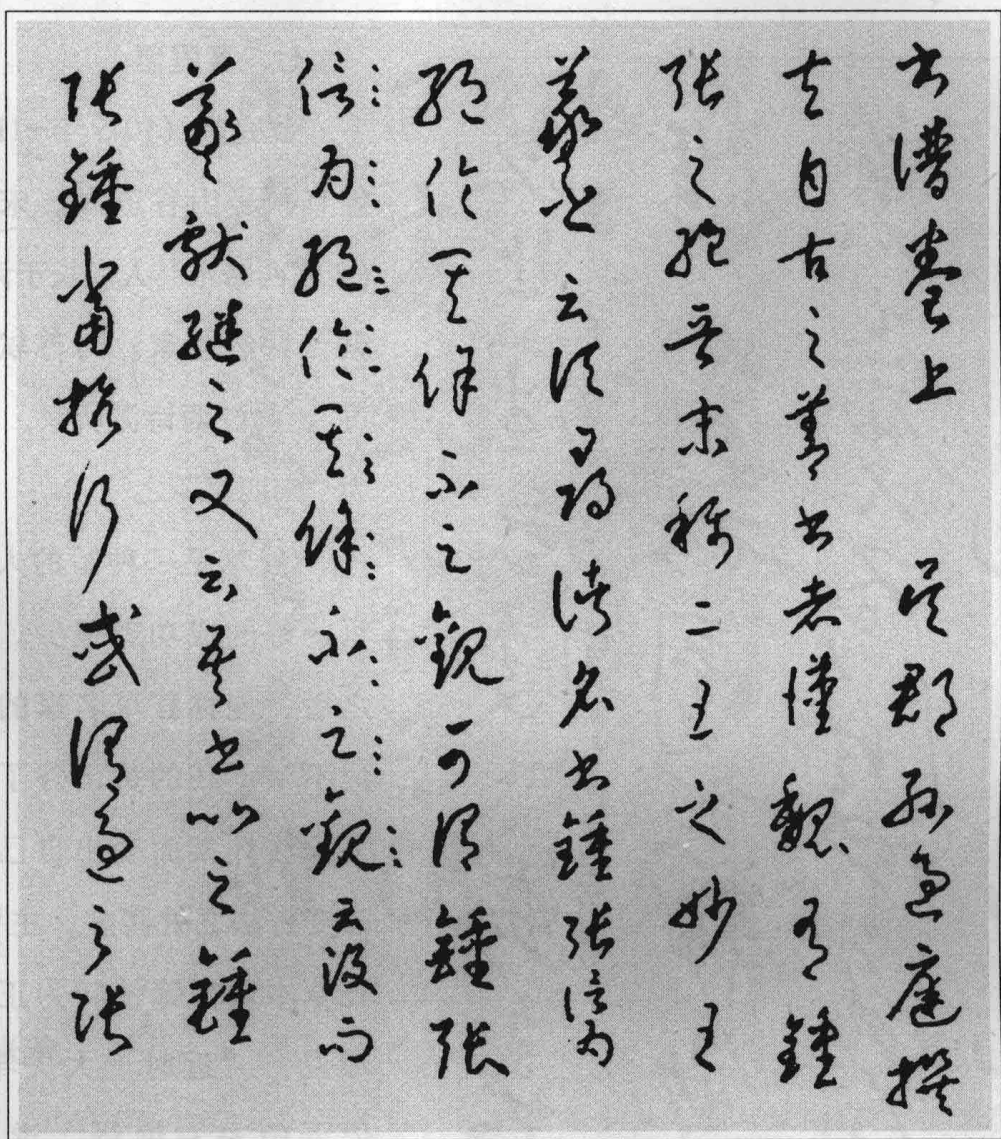 書譜卷上 吳郡孫過庭撰
夫自古之善書者漢魏有鍾
張之絕晉末稱二王之妙王
羲之云頃尋諸名書鍾張信為
絕倫其餘不足觀可謂鍾張
信為絕倫其餘不足觀云沒而
羲獻繼之又云吾書比之鍾
張鍾當抗行或謂過之張